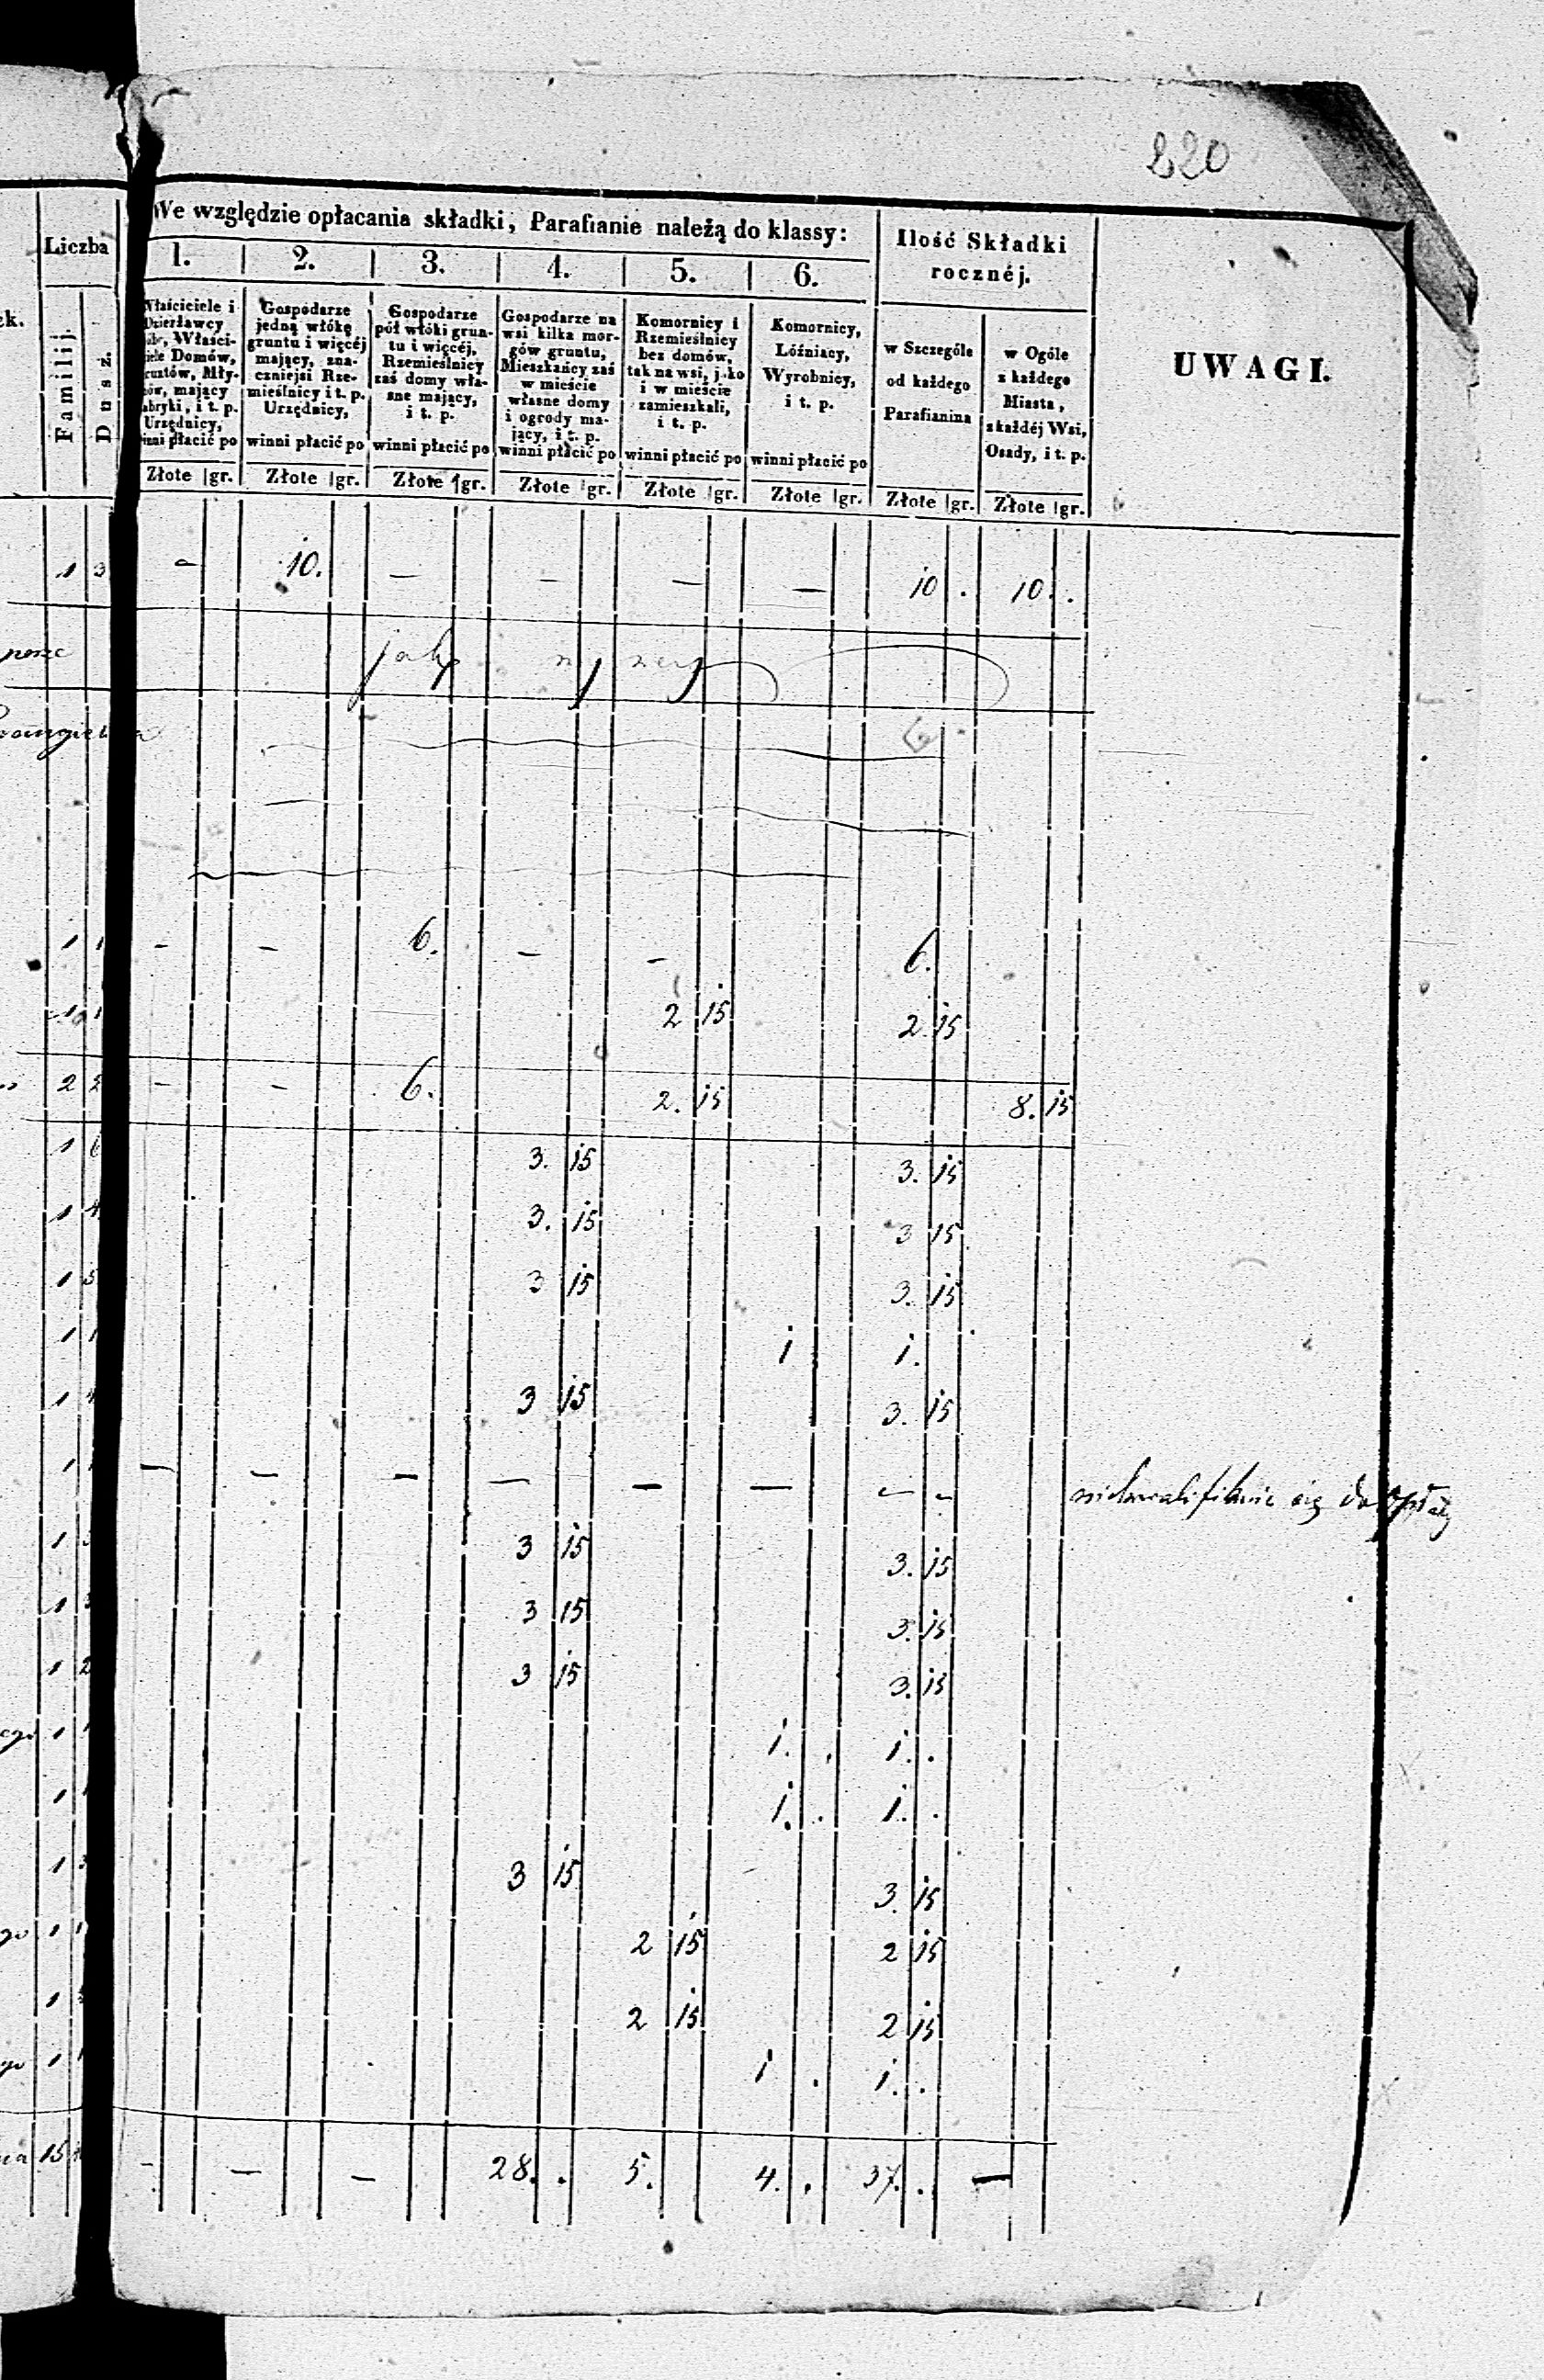 220
We względzie opłacania składki, Parafianie należą do klassy:
Liczba
Familij.
Dusz.
1. 2. 3. 4. 5. 6.
Ilość Składki
rocznéj.
UWAGI.
Właściciele i
Dzierżawcy
Dóbr, Właści-
ciele Domów,
Gruntów, Mły-
nów, mający
Fabryki, i t. p.
Urzędnicy,
winni płacić po
Gospodarze
jedną włókę
gruntu i więcéj
mający, zna-
czniejsi Rze-
mieślnicy i t. p.
Urzędnicy,
winni płacić po
Gospodarze
pół włóki grun-
tu i więcéj,
Rzemieślnicy
zaś domy wła-
sne mający,
i t. p.
winni płacić po
Gospodarze na
wsi kilka mor-
gów gruntu,
Mieszkańcy zaś
w mieście
własne domy
i ogrody ma-
jący, i t. p.
winni płacić po
Komornicy i
Rzemieślnicy
bez domów,
tak na wsi, jako
i w mieście
zamieszkali,
i t. p.
winni płacić po
Komornicy,
Lóźniacy,
Wyrobnicy,
i t. p.
winni płacić po
w Szczególe
od każdego
Parafianina
w Ogóle
z każdego
Miasta,
z każdéj Wsi,
Osady, i t. p.
Złote gr. Złote gr. Złote gr. Złote gr. Złote gr. Złote gr. Złote gr. Złote gr.
1 3 - 10. - - - - 10 . 10 . .
jak wyzey
1 1 - - 6. - - 6.
1 1 2 15 2. 15
2 2 - - 6. 2. 15 8. 15
1 6 3. 15 3. 15
1 4 3. 15 3 15
1 5 3 15 3. 15
1 1 1 1.
1 4 3 15 3. 15
1 - - - - - - - - niekwalifikuie się do opłaty
1 3 15 3. 15
1 3 15 3. 15
1 2 3 15 3. 15
1 1 1. . 1. .
1 1 1. . 1. .
1 3 3 15 3. 15
1 1 2 15 2 15
1 2 15 2 15
1 1 1 . 1. .
15 - - - 28. . 5. 4. . 37. . -